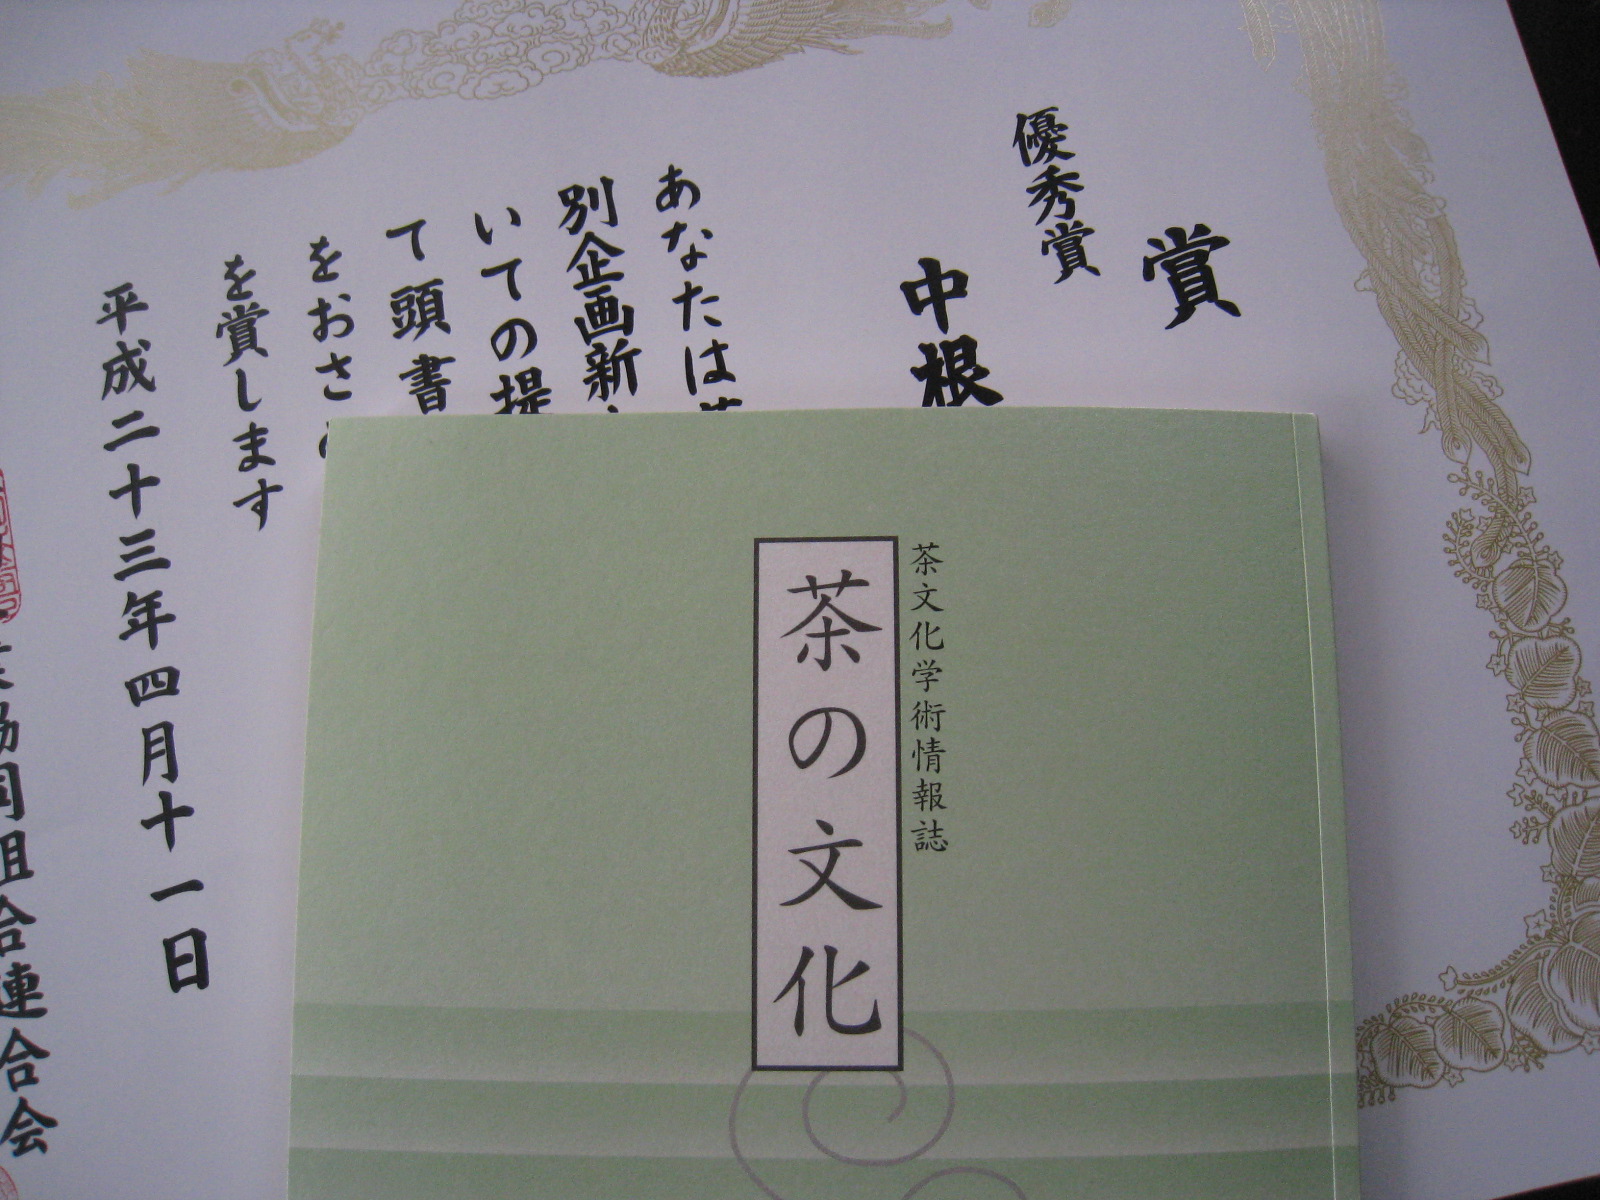 賞
優秀賞
中根
あなたは
別企画新
いての提
て頭書
をおさ
を賞します
平成二十三年四月十一日
協同組合連合会
茶文化学術情報誌
茶の文化